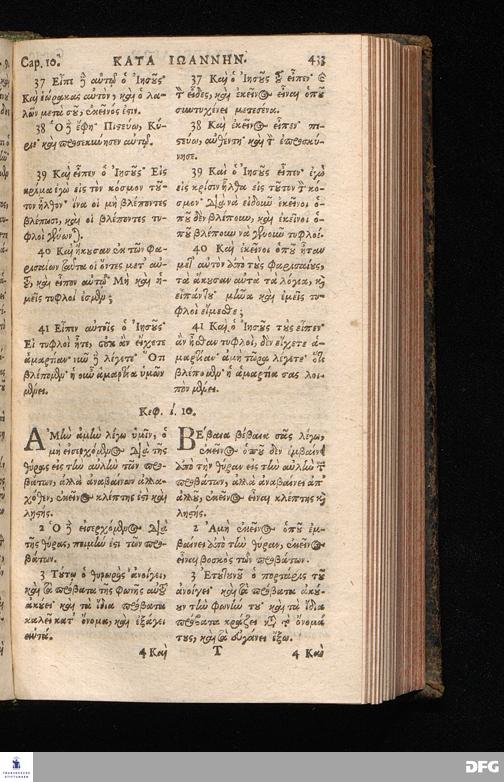 Cap. 10. ΚΑΤΑ ΙΩΑΝΝΗΝ. 433
37 Εἶπε ἢ αὐτῷ ὁ Ἰησοῦς
Καὶ ἑώρακας αὐτὸν, καὶ ὁ λα-
λῶν μετὰ σοῦ, ἐκεῖνός ἐστιν.
38 Ὁ ἢ ἔφη· Πιστεύω, Κύ-
ριε· καὶ προσεκύνησεν αὐτῷ.
39 Καὶ εἶπεν ὁ Ἰησοῦς· Εἰς
κρίμα ἐγὼ εἰς τὸν κόσμον τοῦ-
τον ἦλθον· ἵνα οἱ μὴ βλέποντες
βλέπωσι, καὶ οἱ βλέποντες τυ-
φλοὶ γένωνται.
40 Καὶ ἤκουσαν ἐκ τῶν Φα-
ρισαίων ταῦτα οἱ ὄντες μετ' αὐ-
τοῦ, καὶ εἶπον αὐτῷ· Μὴ καὶ ἡ-
μεῖς τυφλοί ἐσμεν;
41 Εἶπεν αὐτοῖς ὁ Ἰησοῦς·
Εἰ τυφλοὶ ἦτε, οὐκ ἂν εἴχετε
ἁμαρτίαν· νῦν ἢ λέγετε· Ὅτι
βλέπομεν· ἡ οὖν ἁμαρτία ὑμῶν
μένει.
37 Καὶ ὁ Ἰησοῦς τοῦ εἶπεν· Καὶ
τὸν εἶδες, καὶ ἐκεῖνος εἶναι ὁποῦ
συντυχένει μετεσένα.
38 Καὶ ἐκεῖνος εἶπεν· πι-
στεύω, αὐθέντη· καὶ τὸν ἐπροσκύ-
νησε.
39 Καὶ ὁ Ἰησοῦς εἶπεν· ἐγὼ
εἰς κρίσιν ἦλθα εἰς τοῦτον τὸν κό-
σμον· διὰ νὰ εἰδοῦν ἐκεῖνοι ὁ-
ποῦ δὲν βλέπουν, καὶ ἐκεῖνοι ὁ-
ποῦ βλέπουν νὰ γένουν τυφλοί.
40 Καὶ ἐκεῖνοι ὁποῦ ἦταν
μετ' αὐτὸν ἀπὸ τοὺς Φαρισαίους,
τὰ ἄκουσαν αὐτὰ τὰ λόγια, καὶ
εἶπάν του· μήνα καὶ ἐμεῖς τυ-
φλοὶ εἴμεσθε;
41 Καὶ ὁ Ἰησοῦς τοὺς εἶπεν·
ἂν ἦσθαν τυφλοὶ, δὲν εἴχετε ἁ-
μαρτίαν· ἀμὴ τώρα λέγετε· ὅτι
βλέπομεν· ἡ ἁμαρτία σας λοι-
πὸν μένει.
Κεφ. ί. 10.
ΑΜὴν ἀμὴν λέγω ὑμῖν, ὁ
μὴ εἰσερχόμενος διὰ τῆς
θύρας εἰς τὴν αὐλὴν τῶν προ-
βάτων, ἀλλὰ ἀναβαίνων ἀλλα-
χόθεν, ἐκεῖνος κλέπτης ἐστὶ καὶ
λῃστής.
2 Ὁ ἢ εἰσερχόμενος διὰ
τῆς θύρας, ποιμήν ἐστι τῶν προ-
βάτων.
3 Τούτῳ ὁ θυρωρὸς ἀνοίγει,
καὶ τὰ πρόβατα τῆς φωνῆς αὐτοῦ
ἀκούει· καὶ τὰ ἴδια πρόβατα
καλεῖ κατ' ὄνομα, καὶ ἐξάγει
αὐτά.
4 Καὶ
ΒΕβαια βέβαια σᾶς λέγω,
ἐκεῖνος ὁποῦ δὲν ἐμβαίνει
ἀπὸ τὴν θύραν εἰς τὴν αὐλὴν τῶν
προβάτων, ἀλλὰ ἀναβαίνει ἀπ'
ἄλλου, ἐκεῖνος εἶναι κλέπτης καὶ
λῃστής.
2 Ἀμὴ ἐκεῖνος ὁποῦ ἐμ-
βαίνει ἀπὸ τὴν θύραν, ἐκεῖνος
εἶναι βοσκὸς τῶν προβάτων.
3 Ἐτουτουνοῦ ὁ πορτάρις τοῦ
ἀνοίγει· καὶ τὰ πρόβατα ἀκού-
ουν τὴν φωνήν του· καὶ τὰ ἴδια
πρόβατα κράζει κατὰ τὸ ὄνομά
τους, καὶ τὰ εὐγάνει ἔξω.
T 4 Καὶ
FRANCKESCHE STIFTUNGEN
DFG